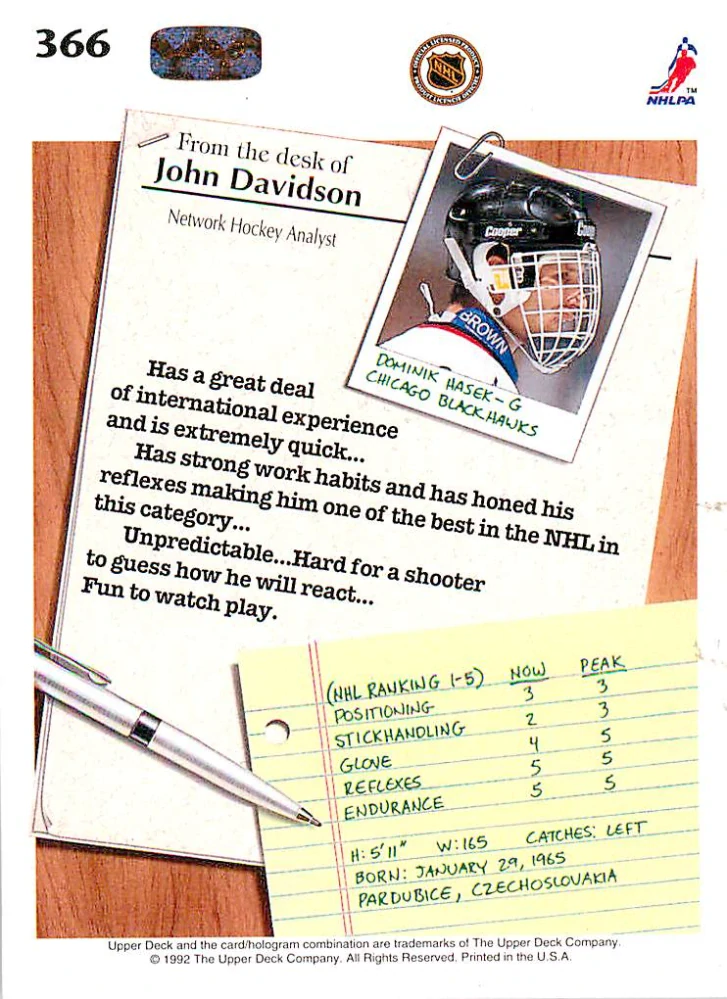 366
OFFICIAL LICENSED PRODUCT
NHL
PRODUIT LICENCIÉ OFFICIEL
TM
NHLPA
From the desk of
John Davidson
Network Hockey Analyst
Cooper
BROWN
DOMINIK HASEK - G
CHICAGO BLACKHAWKS
Has a great deal
of international experience
and is extremely quick...
Has strong work habits and has honed his
reflexes making him one of the best in the NHL in
this category...
Unpredictable...Hard for a shooter
to guess how he will react...
Fun to watch play.
(NHL RANKING 1-5) NOW PEAK
POSITIONING 3 3
STICKHANDLING 2 3
GLOVE 4 5
REFLEXES 5 5
ENDURANCE 5 5
H: 5'11" W: 165 CATCHES: LEFT
BORN: JANUARY 29, 1965
PARDUBICE, CZECHOSLOVAKIA
Upper Deck and the card/hologram combination are trademarks of The Upper Deck Company.
© 1992 The Upper Deck Company. All Rights Reserved. Printed in the U.S.A.